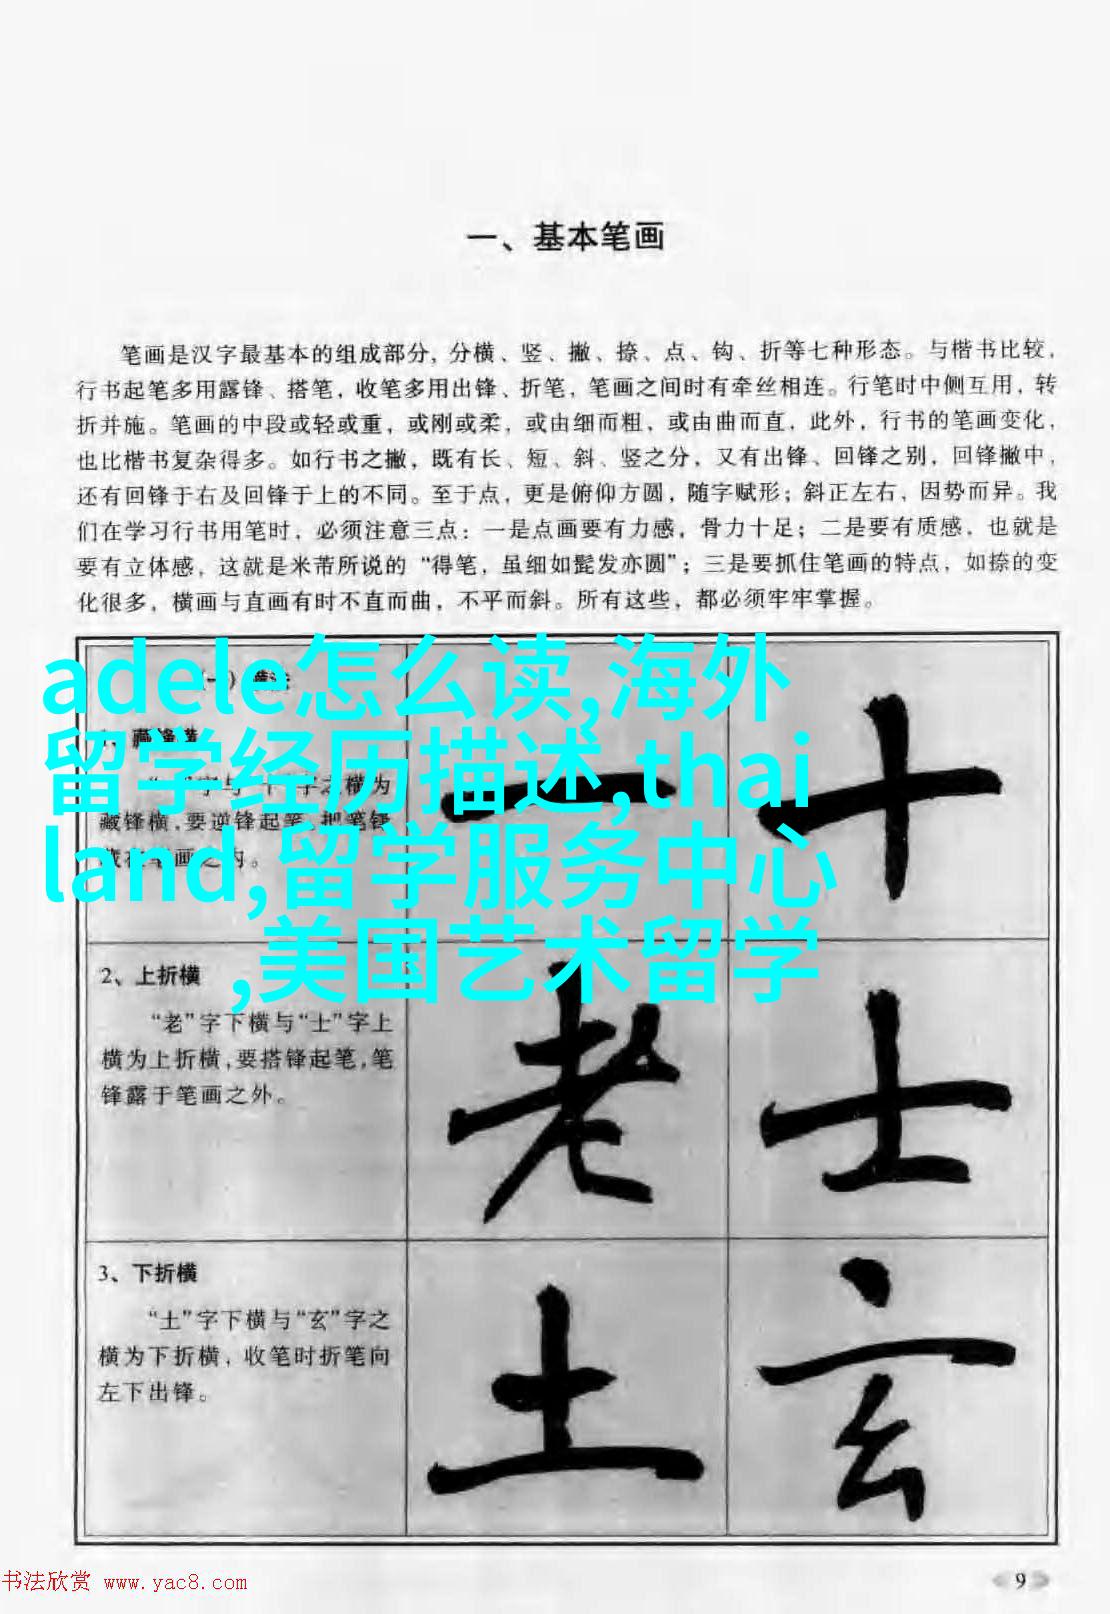 一、基本笔画
笔画是汉字最基本的组成部分，分横、竖、撇、捺、点、钩、折等七种形态。与楷书比较，
行书起笔多用露锋、搭笔，收笔多用出锋、折笔，笔画之间时有牵丝相连。行笔时中侧互用，转
折并施。笔画的中段或轻或重，或刚或柔，或由细而粗，或由曲而直，此外，行书的笔画变化，
也比楷书复杂得多。如行书之撇，既有长、短、斜、竖之分，又有出锋、回锋之别，回锋撇中，
还有回锋于右及回锋于上的不同。至于点，更是俯仰方圆，随字赋形；斜正左右，因势而异。我
们在学习行书用笔时，必须注意三点：一是点画要有力感，骨力十足；二是要有质感，也就是
要有立体感，这就是米芾所说的“得笔，虽细如髭发亦圆”；三是要抓住笔画的特点，如捺的变
化很多，横画与直画有时不直而曲，不平而斜。所有这些，都必须牢牢掌握。
adele怎么读,海外
留学经历描述,thai
land,留学服务中心
,美国艺术留学
藏锋横，要逆锋起笔，把笔锋
一 十
2、上折横
“老”字下横与“士”字上
横为上折横，要搭锋起笔，笔
锋露于笔画之外。
老 士
3、下折横
“土”字下横与“玄”字之
横为下折横，收笔时折笔向
左下出锋。
土 玄
书法欣赏 www.yac8.com
9